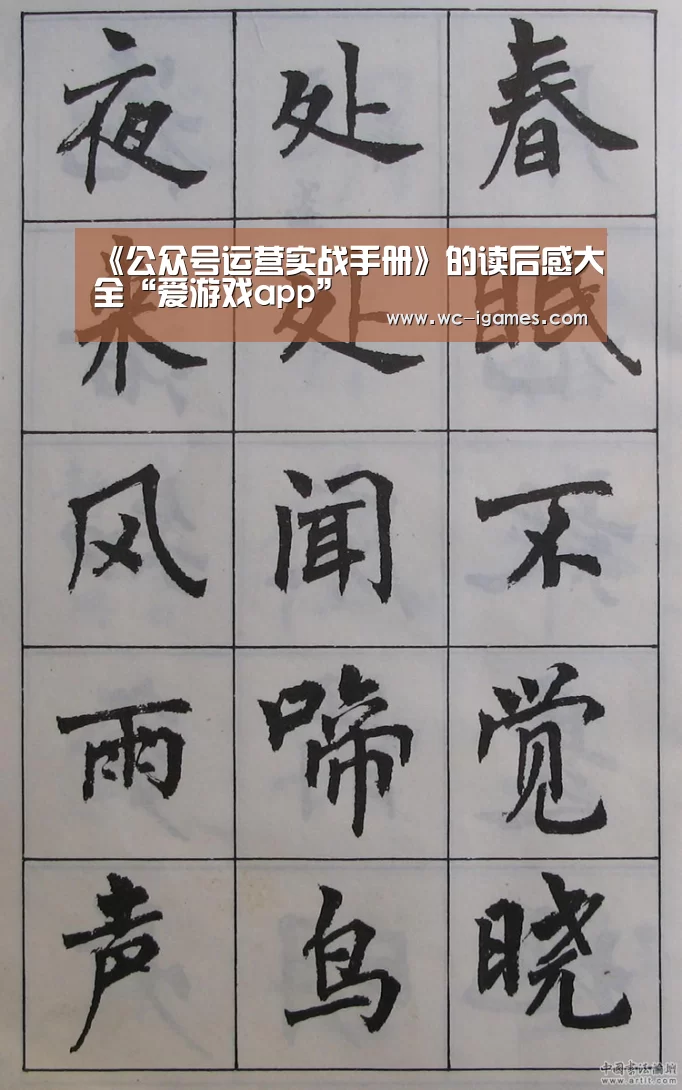 春眠不觉晓
处处闻啼鸟
夜来风雨声
《公众号运营实战手册》的读后感大
全“爱游戏app”
www.wc-igames.com
中国书法论坛
www.artit.com